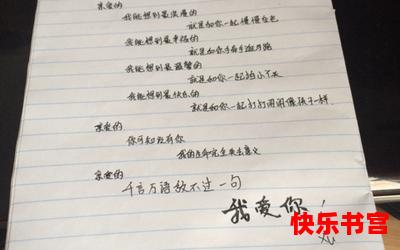 亲爱的
我能想到最浪漫的
就是和你一起慢慢变老
我能想到最幸福的
就是和你手牵手
我能想到最
就是和你一起
我能想到最快乐的
就是和你一起打打闹闹像孩子一样
亲爱的
你可知没有你
我的生命完全失去意义
亲爱的
千言万语敌不过一句
我爱你！
快乐书宫